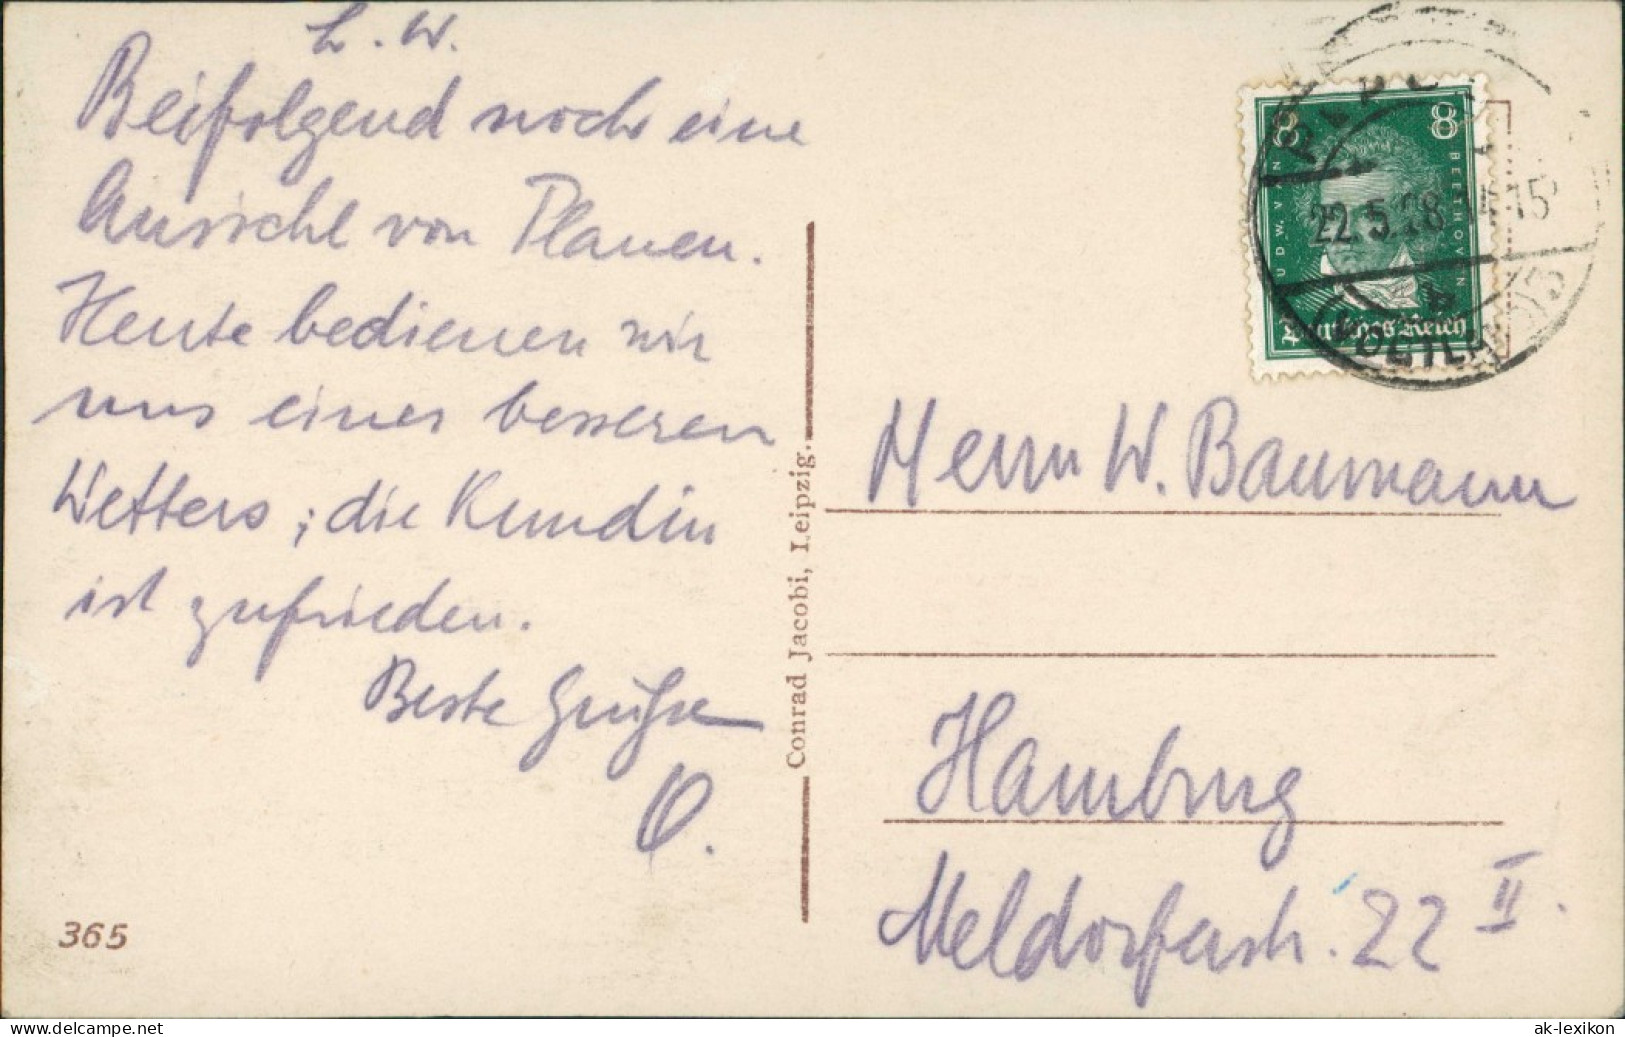 L. W.
Beifolgend noch eine
Aussicht von Plauen.
Heute bedienen wir
uns eines besseren
Wetters; die Kundin
ist zufrieden.
Beste Grüße
O.
365
Conrad Jacobi, Leipzig.
8 8
LUDW. V. VAN BEETHOVEN
Deutsches Reich
PLAUEN
22.5.28. 14-15
(VOGTLAND)
Herrn W. Baumann
Hamburg
Meldorferstr. 22 II.
ak-lexikon.de
www.delcampe.net